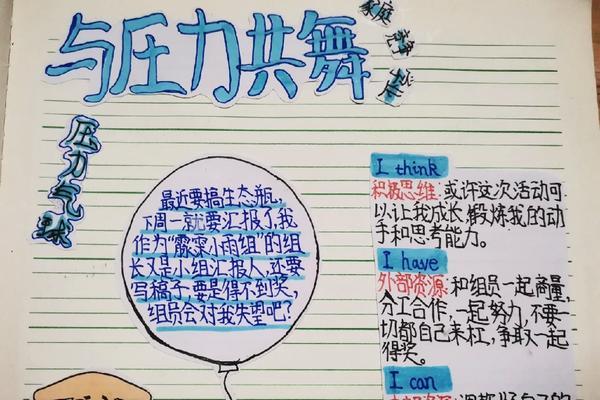 与压力共舞
家庭
压力气球
最近要搞生态瓶，
下周一就要汇报了，我
作为“霡霂小雨组”的组
长又是小组汇报人，还要
写稿子，要是得不到奖，
组员会对我失望吧？
I think
积极思维：或许这次活动可
以让我成长，锻炼我的动
手和思考能力。
I have
外部资源：和组员一起商量，
分工合作，一起努力，不要一
切都自己来杠，争取一起
得奖。
I can